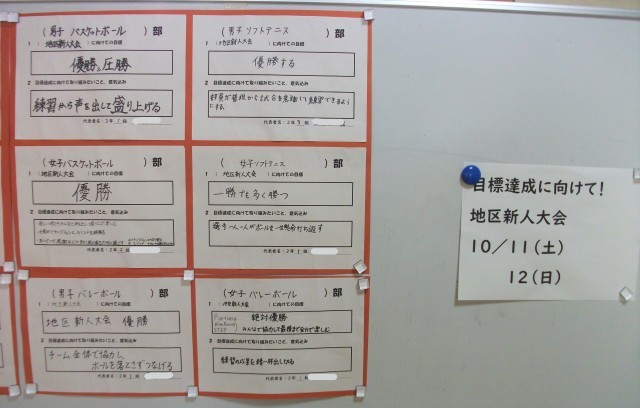 （男子 バスケットボール）部
1 （地区新人大会）に向けての目標
優勝、圧勝
2 目標達成に向けて取り組みたいこと、意気込み
練習から声を出して盛り上げる
代表者名：2年
（男子 ソフトテニス）部
1 （地区新人大会）に向けての目標
優勝する
2 目標達成に向けて取り組みたいこと、意気込み
代表者名：2年
（女子バスケットボール）部
1 （地区新人大会）に向けての目標
優勝
2 目標達成に向けて取り組みたいこと、意気込み
（女子ソフトテニス）部
1 （地区新人大会）に向けての目標
一勝でも多く勝つ
2 目標達成に向けて取り組みたいこと、意気込み
選手一人一人がボールを一生懸命打ち返す
代表者名：2年
（男子 バレーボール）部
1 （地区新人大会）に向けての目標
地区新人大会 優勝
2 目標達成に向けて取り組みたいこと、意気込み
チーム全体で協力し、
ボールを落とさずつなげる
代表者名：2年
（女子 バレーボール）部
1 （地区新人大会）に向けての目標
絶対優勝
みんなで協力して最後まで全力で楽しむ
2 目標達成に向けて取り組みたいこと、意気込み
練習の成果を精一杯出しきる
代表者名：2年
目標達成に向けて！
地区新人大会
10／11（土）
12（日）